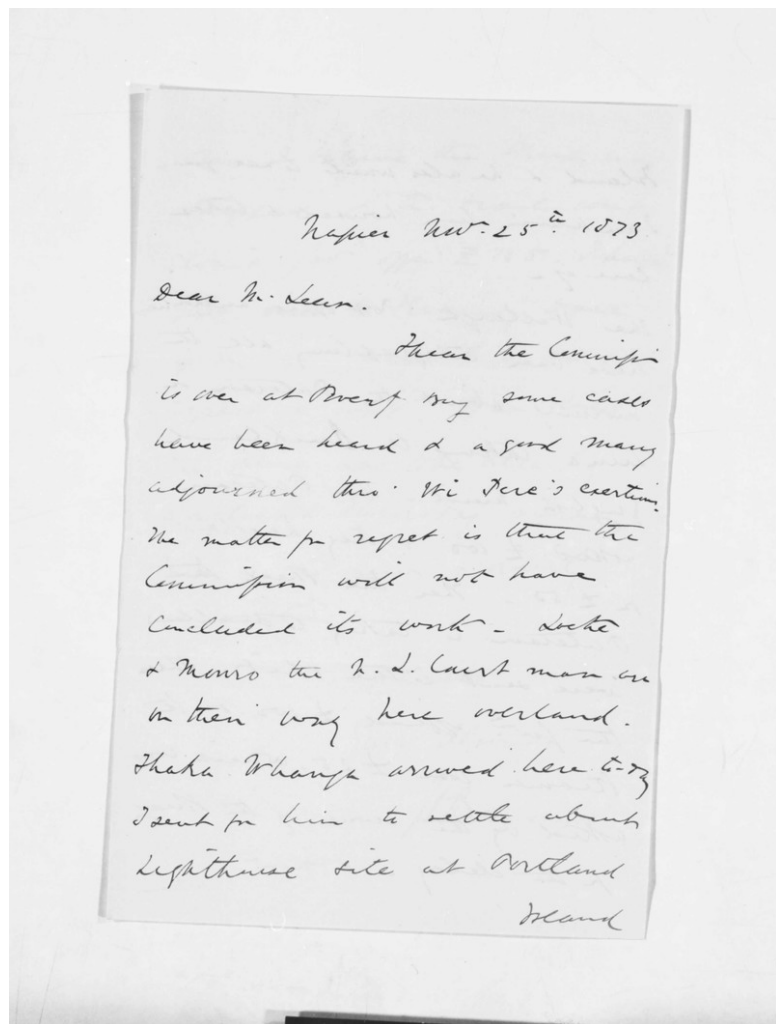 Napier Nov. 25th. 1873
Dear Mr. Lean.
I hear the Commissn
is over at Poverty Bay some cases
have been heard & a good many
adjourned thro' Wi Pere's exertions.
The matter for regret is that the
Commission will not have
concluded its work - Locke
& Monro the N. L. Court man are
on their way here overland.
Ihaka Whanga arrived here to-day
I sent for him to settle about
Lighthouse site at Portland
Island